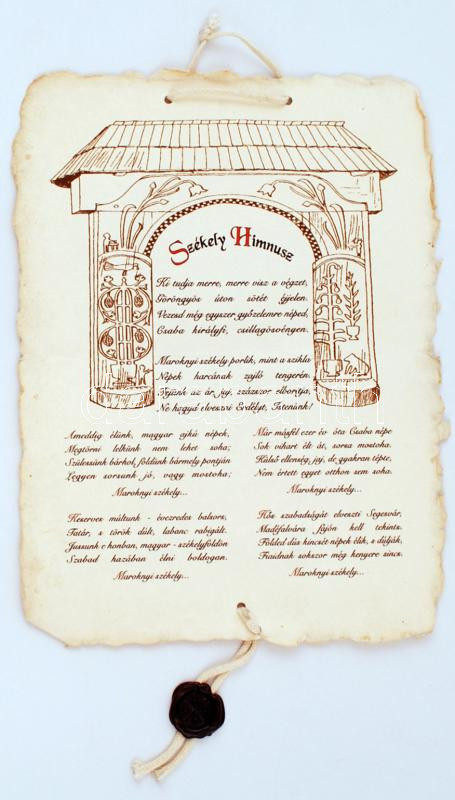 Székely Himnusz
Ki tudja merre, merre visz a végzet,
Göröngyös úton sötét éjjelen.
Vezesd még egyszer győzelemre néped,
Csaba királyfi, csillagösvényen.
Maroknyi székely porlik, mint a szikla
Népek harcának zajló tengerén.
Fejünk az ár, jaj, százszor elborítja,
Ne hagyd elveszni Erdélyt, Istenünk!
Ameddig élünk, magyar ajkú népek,
Megtörni lelkünk nem lehet soha;
Szülessünk bárhol, földünk bármely pontján
Legyen sorsunk jó, vagy mostoha;
Maroknyi székely...
Keserves múltunk - évezredes balsors,
Tatár, s török dúlt, labanc rabigált.
Jussunk e honban, magyar - székelyföldön
Szabad hazában élni boldogan.
Maroknyi székely...
Már másfél ezer év óta Csaba népe
Sok vihart élt át, sorsa mostoha.
Külső ellenség, jaj, de gyakran tépte,
Nem értett egyet otthon sem soha.
Maroknyi székely...
Hős szabadságát elveszti Segesvár,
Madéfalvára fájón kell tekints.
Földed dús kincsét népek élik, s dúlják,
Fiaidnak sokszor még kenyere sincs.
Maroknyi székely...